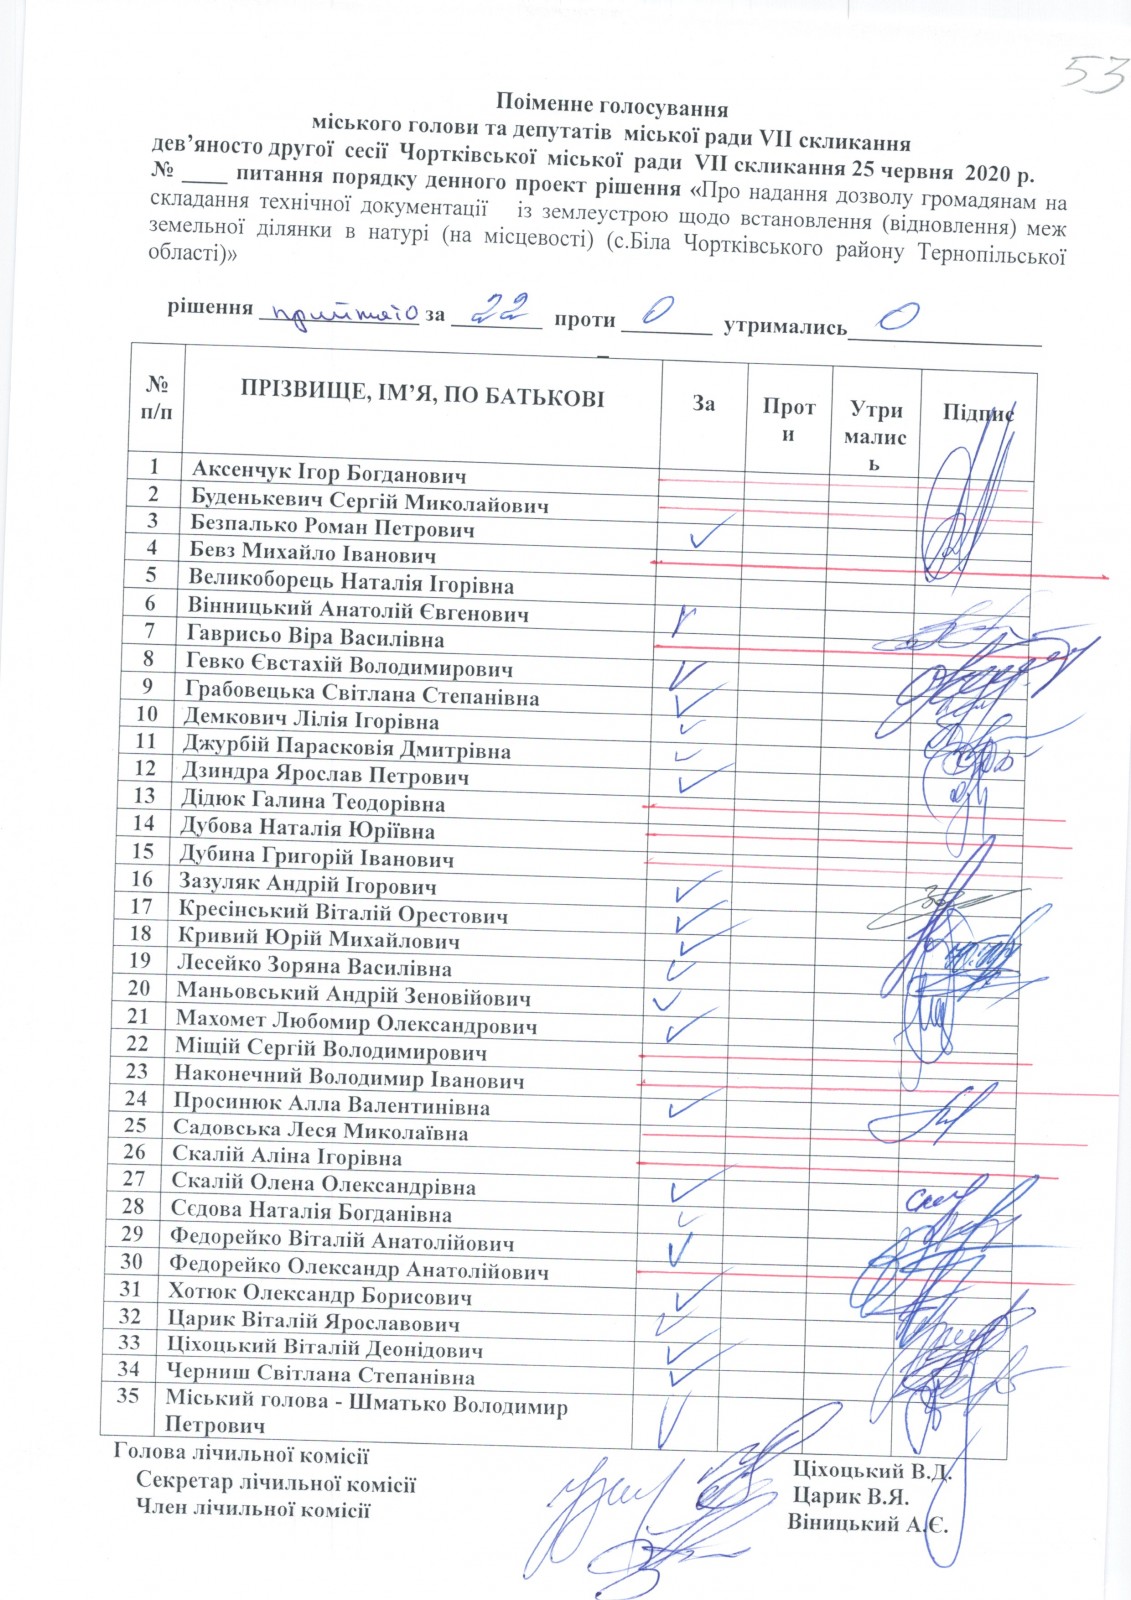 53
Поіменне голосування
міського голови та депутатів міської ради VII скликання
дев’яносто другої сесії Чортківської міської ради VII скликання 25 червня 2020 р.
№ ____ питання порядку денного проект рішення «Про надання дозволу громадянам на
складання технічної документації із землеустрою щодо встановлення (відновлення) меж
земельної ділянки в натурі (на місцевості) (с.Біла Чортківського району Тернопільської
області)»
рішення прийнято за 22 проти 0 утримались 0
№ п/п ПРІЗВИЩЕ, ІМ’Я, ПО БАТЬКОВІ За Проти Утрималисьь Підпис
1 Аксенчук Ігор Богданович
2 Буденькевич Сергій Миколайович
3 Безпалько Роман Петрович
4 Бевз Михайло Іванович
5 Великоборець Наталія Ігорівна
6 Вінницький Анатолій Євгенович
7 Гаврисьо Віра Василівна
8 Гевко Євстахій Володимирович
9 Грабовецька Світлана Степанівна
10 Демкович Лілія Ігорівна
11 Джурбій Парасковія Дмитрівна
12 Дзиндра Ярослав Петрович
13 Дідюк Галина Теодорівна
14 Дубова Наталія Юріївна
15 Дубина Григорій Іванович
16 Зазуляк Андрій Ігорович
17 Кресінський Віталій Орестович
18 Кривий Юрій Михайлович
19 Лесейко Зоряна Василівна
20 Маньовський Андрій Зеновійович
21 Махомет Любомир Олександрович
22 Міщій Сергій Володимирович
23 Наконечний Володимир Іванович
24 Просинюк Алла Валентинівна
25 Садовська Леся Миколаївна
26 Скалій Аліна Ігорівна
27 Скалій Олена Олександрівна
28 Сєдова Наталія Богданівна
29 Федорейко Віталій Анатолійович
30 Федорейко Олександр Анатолійович
31 Хотюк Олександр Борисович
32 Царик Віталій Ярославович
33 Ціхоцький Віталій Деонідович
34 Черниш Світлана Степанівна
35 Міський голова - Шматько Володимир
Петрович
Голова лічильної комісії Ціхоцький В.Д.
Секретар лічильної комісії Царик В.Я.
Член лічильної комісії Віницький А.Є.